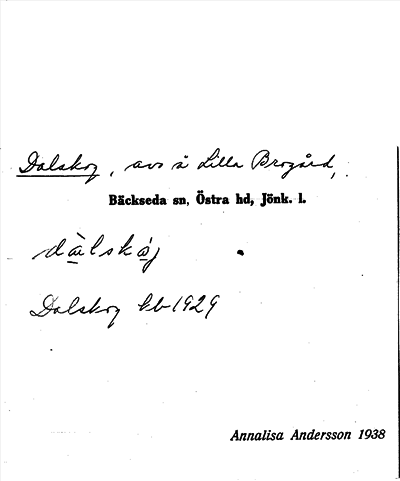 Dalskog, avs å Lilla Brogård,
Bäckseda sn, Östra hd, Jönk. l.
dàlskåg
Dalskog kb 1929
Annalisa Andersson 1938